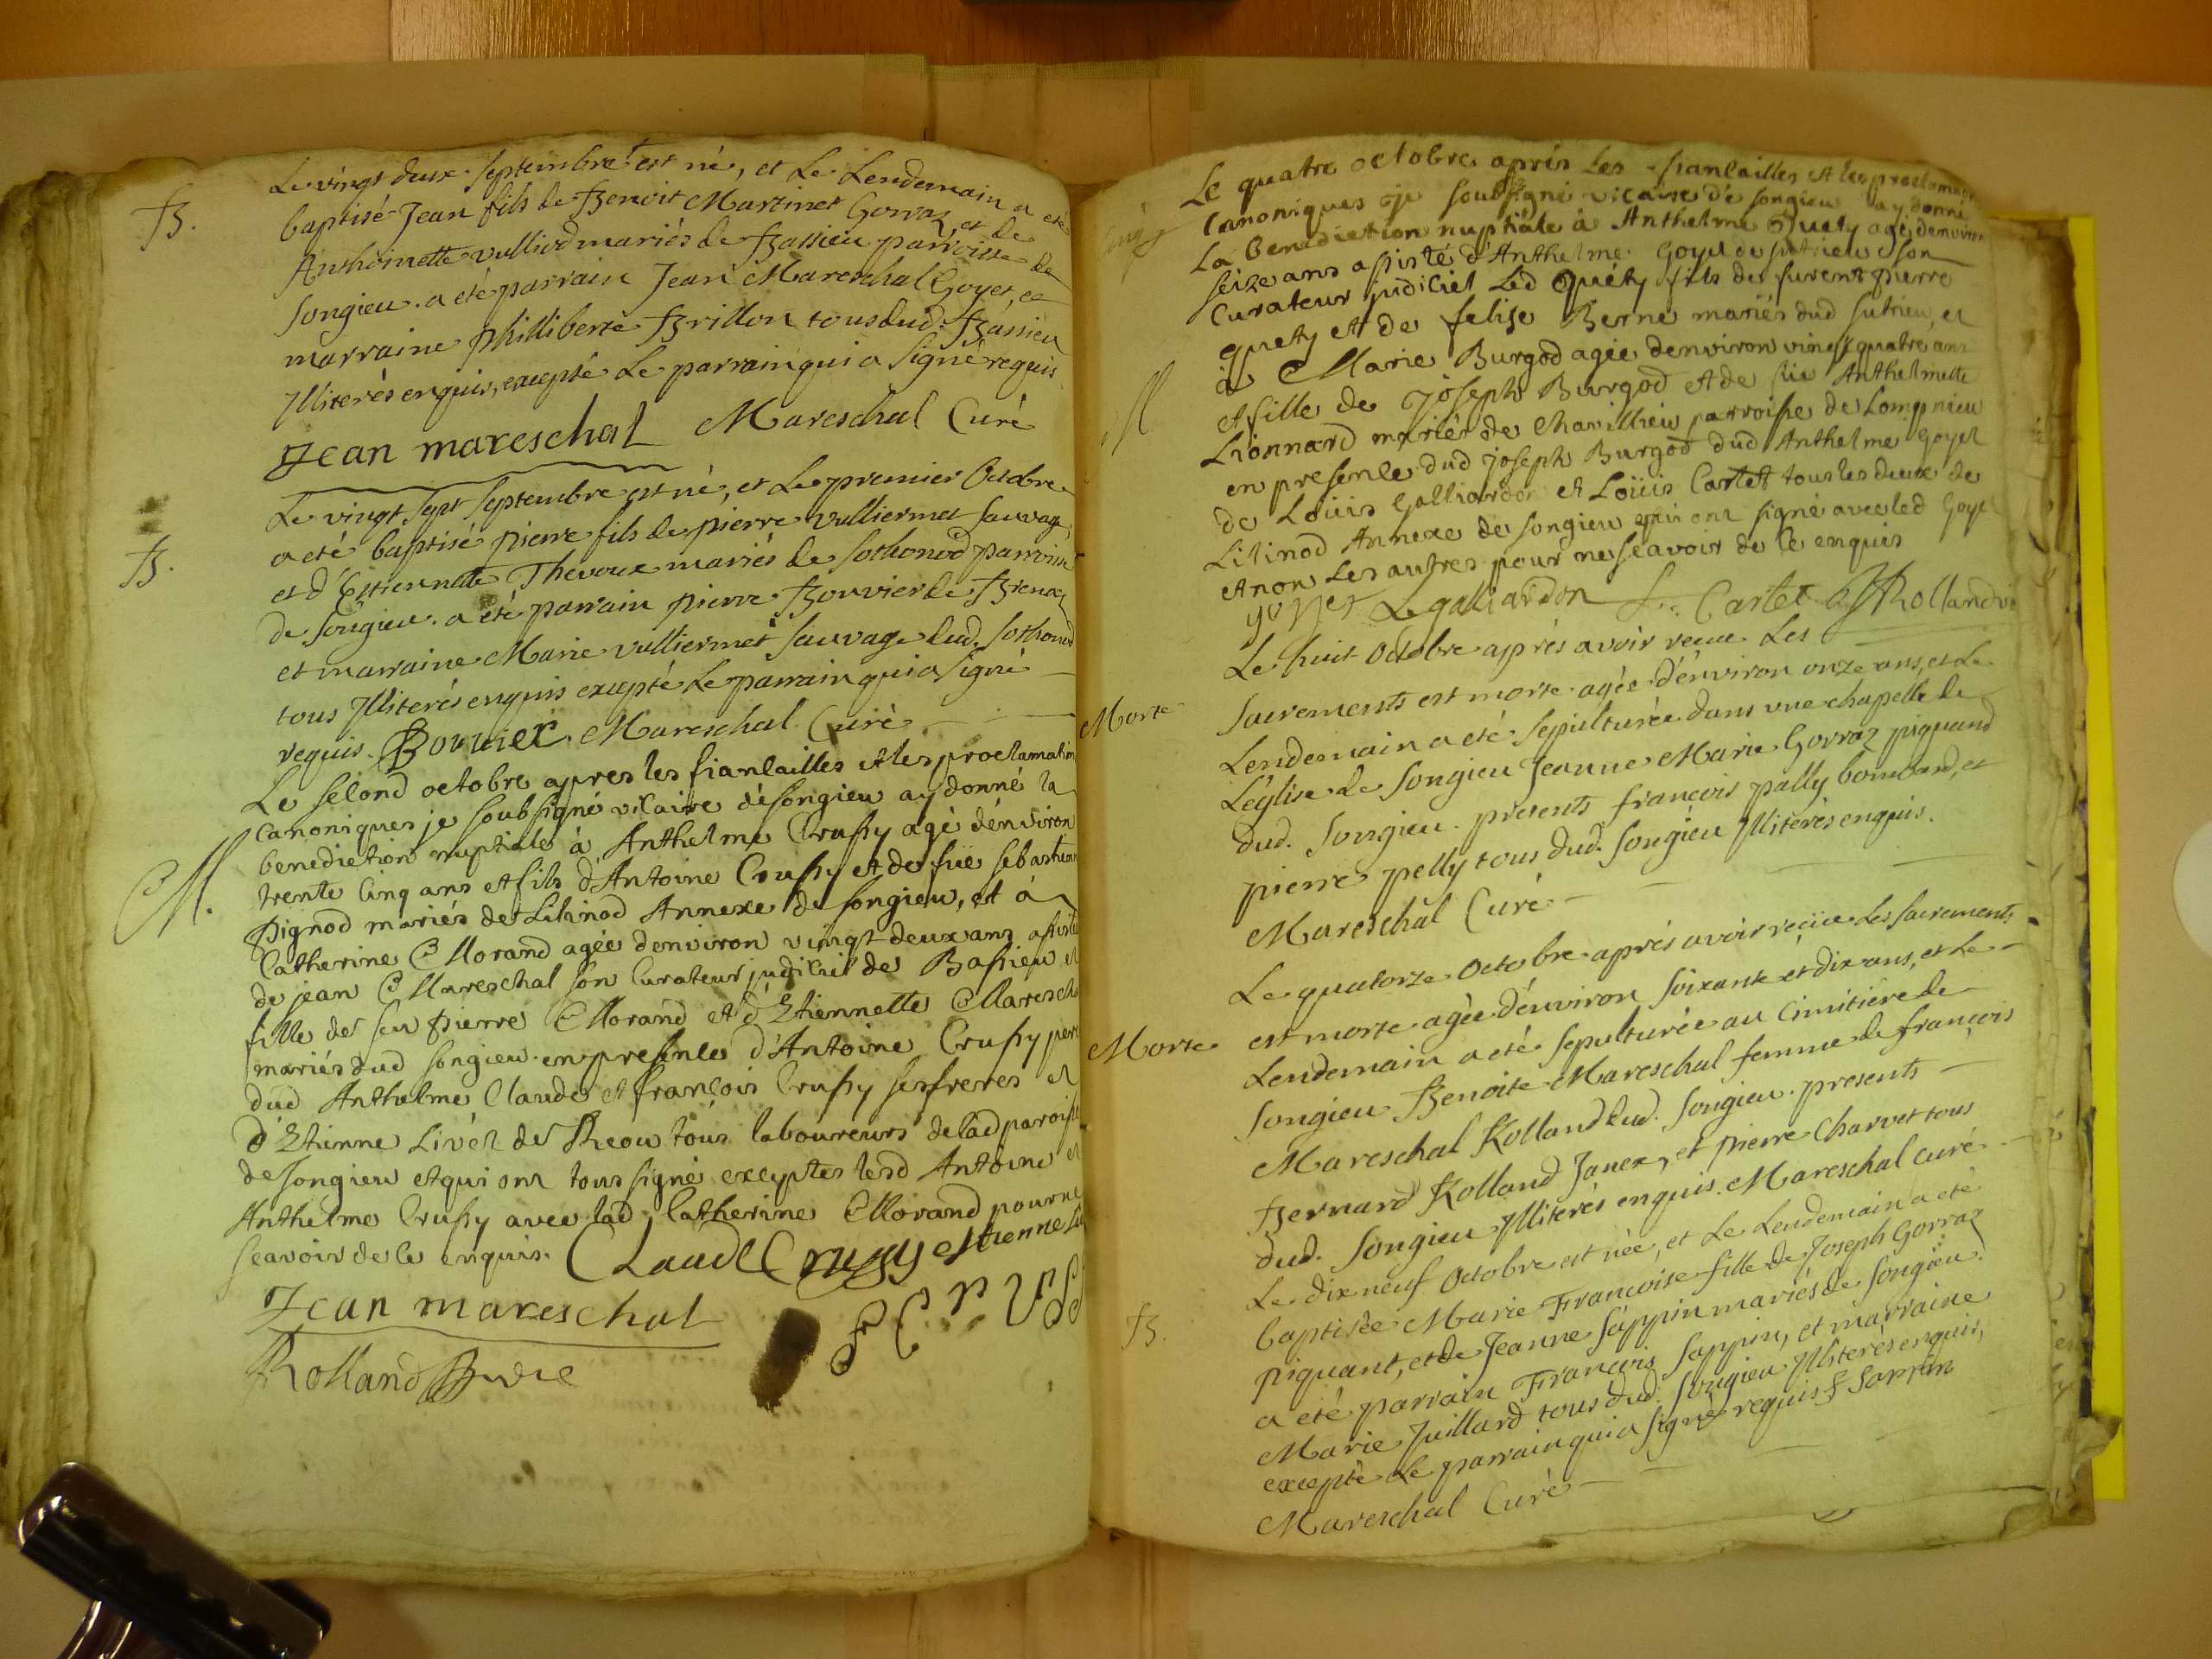 Le vingt deux septembre est né, et Le Lendemain a eté
B.
baptisé Jean fils de Benoit Martinet Gorraz, et de
Anthoinette vulliod mariés de Bassieu parroisse de
Songieu. a eté parrain Jean Mareschal Goyet, et
marraine Philliberte Brillon tous dud. Bassieu
Illiterés enquis, excepté Le parrain qui a signé requis
Jean mareschal Mareschal Curé
Le vingt sept septembre est né, et Le premier Octobre
B.
a eté baptisé pierre fils de pierre vulliermet sauvage
et d'Estiennette Thevoux mariés de sothonod parroisse
de Songieu. a eté parrain pierre Bouvier de Brenaz
et marraine Marie vulliermet sauvage dud. sothonod
tous Illiterés enquis excepté Le parrain qui a signé
requis. Bouvier Mareschal Curé
Le second octobre apres les fiancailles et les proclamation
canoniques je soubsigné vicaire de songieu ay donné la
benediction nuptiale à Anthelme Crussy agé d'environ
M.
trente cinq ans et fils d'Antoine Crussy et de füe sebastienne
pignod mariés de Lilinod Annexe de songieu, et à
Catherine Morand agée denviron vingt deux ans assistée
de jean Mareschal son Curateur judiciel de Bassieu et
fille de feu pierre Morand et d'Etiennette Maresch
mariés dud songieu. en presence d'Antoine Crussy pere
dud Anthelme Claude et françois Crussy ses freres et
d'Etienne Livet de tous laboureurs delad paroisse
de songieu et qui ont tous signés exceptes lesd Antoine et
Anthelme Crussy avec lad Catherine Morand pour ne
scavoir de ce enquis. Claude Crussy etienne
Jean mareschal f Crus
Rolland
Le quatre octobre aprés Les fiancailles et les proclama
canoniques je soubsigné vicaire de songieu ay donné
La benediction nuptiale à Anthelme Quety agé denviron
seize ans assisté d'Anthelme Goyet de sutrieu son
Curateur judiciel Led Quéty fils de furent pierre
quety et de felise Berne mariés dud sutrieu, et
à Marie Burgod agée denviron vingt quatre ans
M
et fille de Joseph Burgod et de füe Anthelmette
Lionnard mariés de Chavillieu parroisse de Lompnieu
en presence dud joseph Burgod dud Anthelme Goyet
de Loüis Galliardon et Loüis Cartet tous les deux de
Lilinod Annexe de songieu qui ont signé avec led Goyet
et non Les autres pour ne scavoir de ce enquis
goyet L galiardon L. Cartet Rolland
Le huit Octobre aprés avoir receu Les
Morte
sacrements est morte agée d'énviron onze ans, et Le
Lendemain a eté sepulturée dans une chapelle de
L'église de Songieu Jeanne Marie Gorraz piquand
dud. Songieu. presents françois pally bombard, et
pierre pelly tous dud. Songieu Illiterés enquis.
Mareschal Curé
Le quatorze Octobre aprés avoir recüe Les sacrements
Morte
est morte agée d'énviron soixante et dix ans, et Le
Lendemain a eté sepulturée au Cimitiére de
Songieu Benoite Mareschal femme de françois
Mareschal Rolland dud. Songieu. presents
Bernard Rolland Janex, et pierre Charvet tous
dud. Songieu Illiterés enquis. Mareschal curé
Le dix neuf Octobre est née, et Le Lendemain a eté
B.
baptisée Marie Françoise fille de Joseph Gorraz
piquant, et de Jeanne Sappin mariés de Songieu.
a eté parrain François Sappin, et marraine
Marie Juillard tous dud. Songieu Illiterés enquis,
excepté Le parrain qui a signé requis. f Sappin
Mareschal Curé